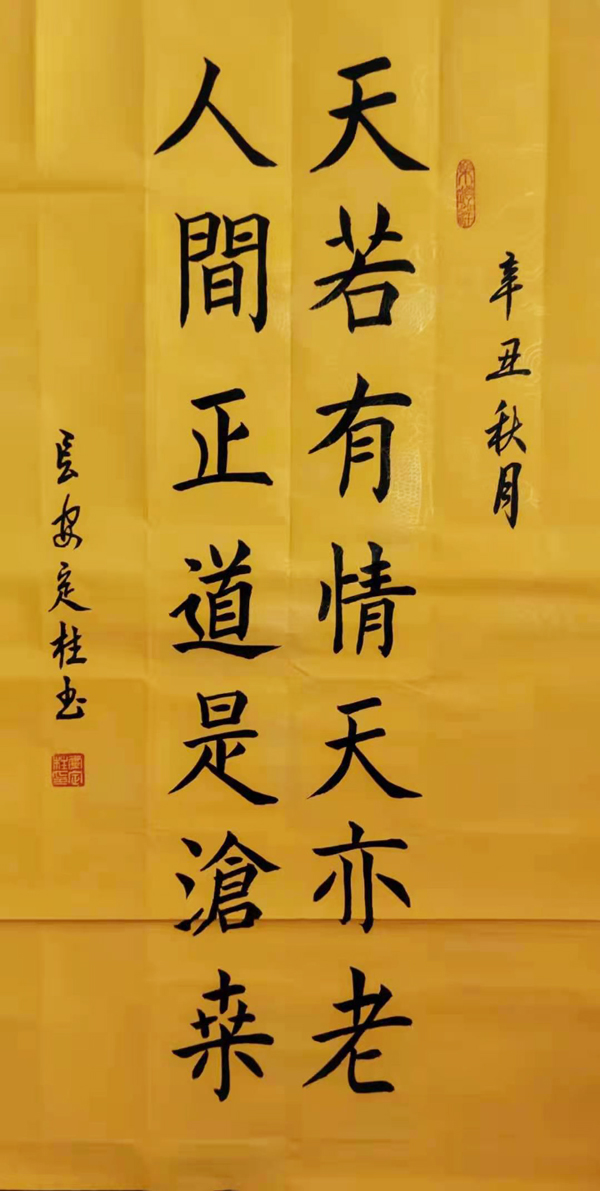 辛丑秋月
天若有情天亦老
人間正道是滄桒
長安定桂书